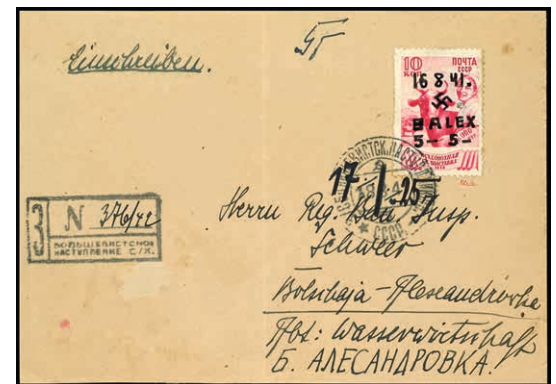 Einschreiben.
10
КОП
ПОЧТА
СССР
16 8 41.
BALEX
5- 5-
17
25
З N 376/42
БОЛЬШЕВИСТСКОЕ
НАСТУПЛЕНИЕ С/Х.
СССР
Herrn Reg. Bau Insp.
Schweer
Bolschaja-Alexandrovka
Abt: Wasserwirtschaft
Б. АЛЕСАНДРОВКА.